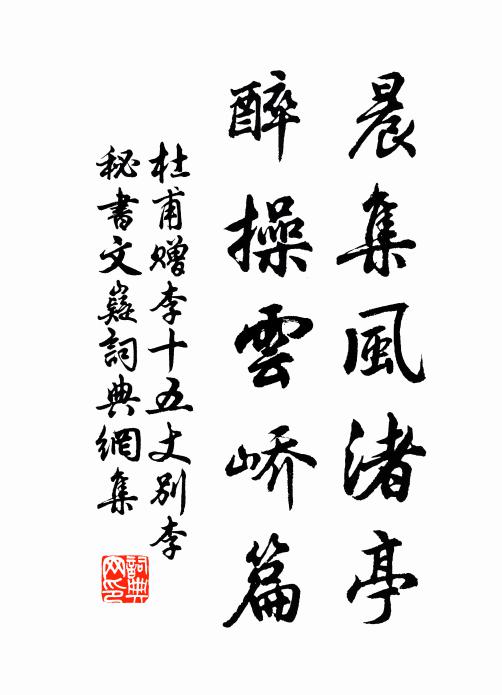 晨集風渚亭
醉操雲嶠篇
杜甫贈李十五丈別李
秘書文嶷詞典網集
詞典網印